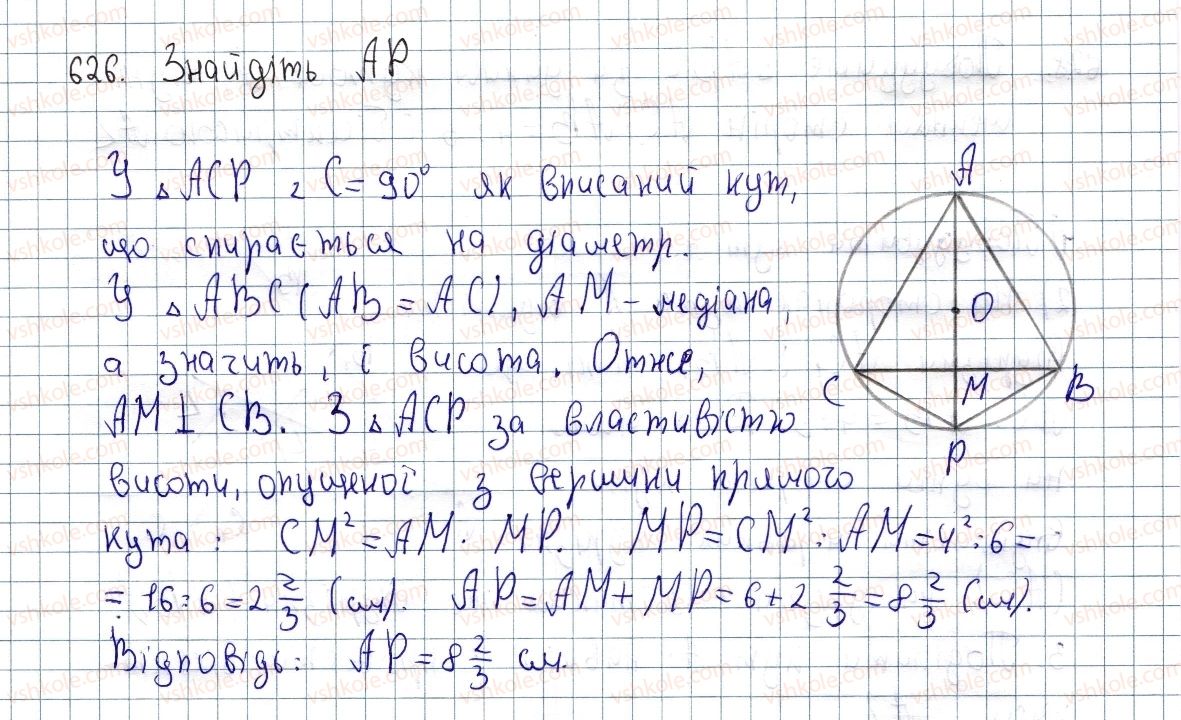 626. Знайдіть AP
У △ACP ∠C = 90° як вписаний кут,
що спирається на діаметр.
У △ABC (AB = AC), AM – медіана,
а значить, і висота. Отже,
AM ⊥ CB. З △ACP за властивістю
висоти, опущеної з вершини прямого
кута: CM² = AM · MP. MP = CM² : AM = 4² : 6 =
= 16 : 6 = 2 2/3 (см). AP = AM + MP = 6 + 2 2/3 = 8 2/3 (см).
Відповідь: AP = 8 2/3 см.
A
O
C
M
B
P
vshkole.com